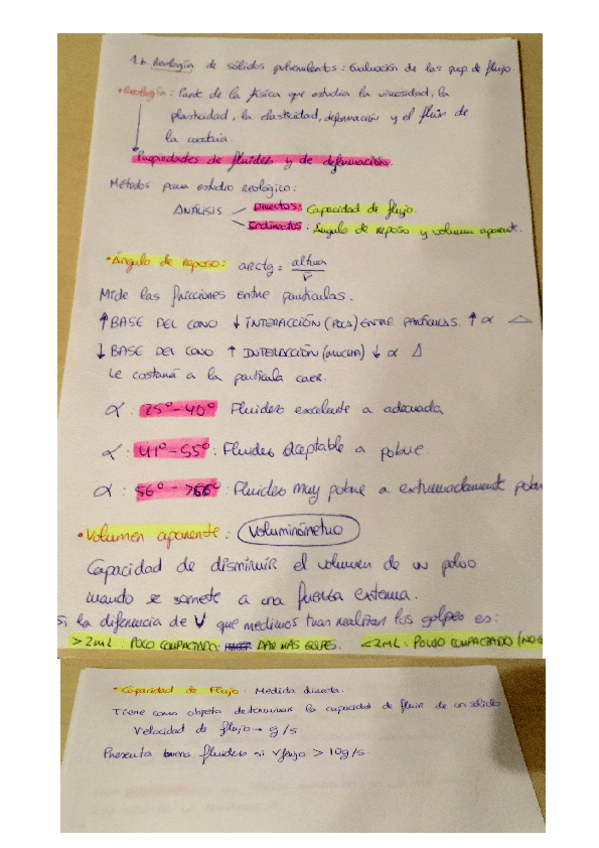 1.b. Reología de sólidos pulverulentos: Evaluación de las prop de flujo.
• Reología: Parte de la física que estudia la viscosidad, la
plasticidad, la elasticidad, deformación y el fluir de
la materia.
Propiedades de fluidez y de deformación.
Métodos para estudio reológico:
ANÁLISIS
Directos: Capacidad de flujo.
Indirectos: Ángulo de reposo y volumen aparente.
• Ángulo de reposo: arctg = altura / r
Mide las fricciones entre partículas.
↑ BASE DEL CONO ↓ INTERACCIÓN (POCA) ENTRE PARTÍCULAS ↑ α △
↓ BASE DEL CONO ↑ INTERACCIÓN (MUCHA) ↓ α △
Le costará a la partícula caer.
α: 25º-40º Fluidez excelente a adecuada
α: 41º-55º: Fluidez aceptable a pobre
α: 56º - >66º: Fluidez muy pobre a extremadamente pobre
• Volumen aparente: Voluminómetro
Capacidad de disminuir el volumen de un polvo
cuando se somete a una fuerza externa.
si la diferencia de V que medimos tras realizar los golpes es:
>2mL: POCO COMPACTADO. DAR MÁS GOLPES. <2mL: POLVO COMPACTADO (NO
• Capacidad de Flujo. Medida directa.
Tiene como objeto determinar la capacidad de fluir de un sólido
Velocidad de flujo → g/s
Presenta buena fluidez si Vflujo > 10g/s.